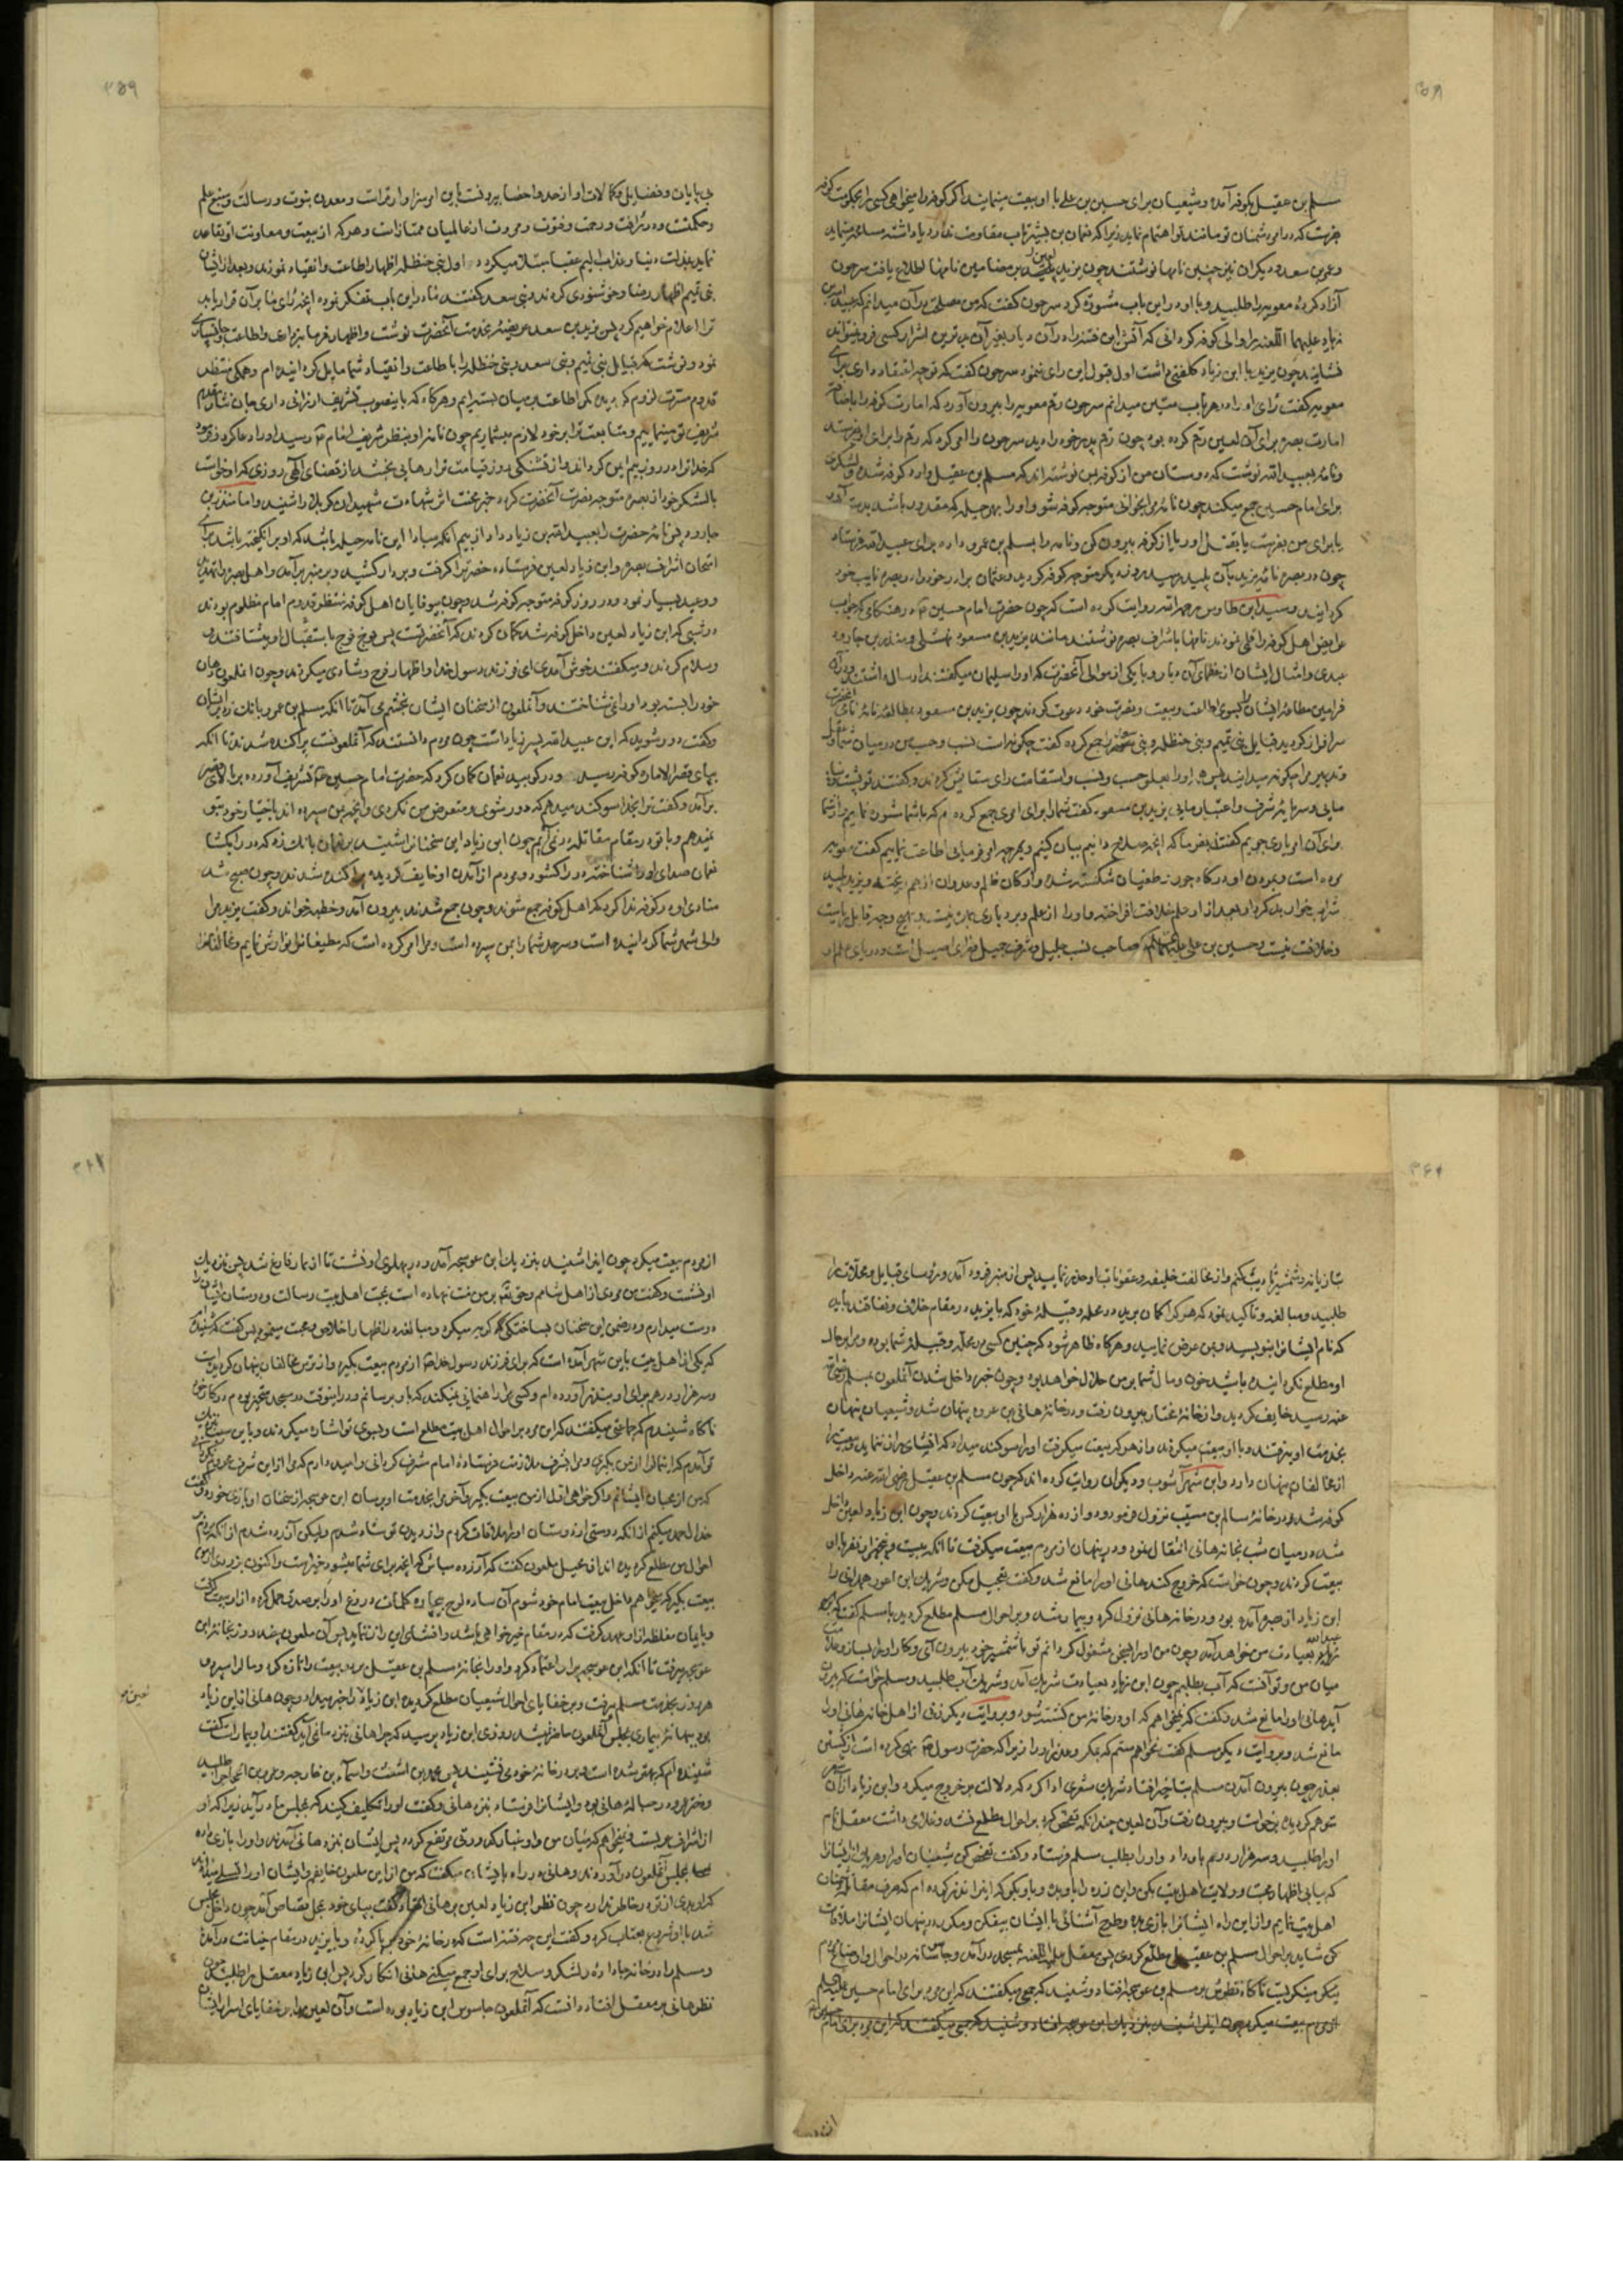 ۳۵۸
مسلم بن عقیل بکوفه آمده و شیعیان برای حسین بن علی با او بیعت مینمایند اگر کوفه را میخواهی کسی را بحکومت کوفه
بفرست که در امر دشمنان تو مانند تو اهتمام نماید زیرا که نعمان بن بشیر تاب مقاومت ندارد یا دانسته مساهله مینماید
و عمر بن سعد و دیگران نیز چنین نامها نوشتند چون یزید پلید بر مضامین نامها اطلاع یافت سرجون
آزاد کردهٔ معویه را طلبید و با او در این باب مشورة کرد سرجون گفت که من مصلحت در آن میدانم که عبید الله بن
زیاد علیهما اللعنه را والی کوفه گردانی که آتش این فتنه را در آن دیار بغیر آن بدترین اشرار کسی فرو نمیتواند
نشانید چون یزید با ابن زیاد کلفتی داشت اول قبول این رای ننمود سرجون گفت که تو چه اعتقاد داری برای
معویه گفت رای او را در هر باب متین میدانم سرجون رقم معویه را بیرون آورد که امارت کوفه را با
امارت بصره برای آن لعین رقم کرده بود چون رقم پدر خود را دید سرجون را امر کرد که رقم را برای او فرستد
و نامه بعبید الله نوشت که دوستان من از کوفه بمن نوشته اند که مسلم بن عقیل وارد کوفه شده و لشکری
برای امام حسین جمع میکند چون نامهٔ مرا بخوانی متوجه کوفه شو و او را بهر حیله که مقدور باشد بدست آور
یا برای من بفرست یا بقتل آور یا از کوفه بیرون کن و نامه را بمسلم بن عمرو داده برای عبید الله فرستاد
چون در بصره نامهٔ یزید بآن پلید رسید روز دیگر متوجه کوفه گردید و عثمان برادر خود را در بصره نایب خود
گردانید و سید ابن طاوس رحمه الله روایت کرده است که چون حضرت امام حسین در هنگامی که جواب
عرایض اهل کوفه را قلمی نمودند نامها باشراف بصره نوشتند مانند یزید بن مسعود نهشلی و منذر بن جارود
عبدی و امثال ایشان از عظمای آن دیار و با یکی از موالی آنحضرت که او را سلیمان میگفتند ارسال داشتند و در آن
فرامین مطاعه ایشان را بسوی اطاعت و بیعت و نصرت خود دعوت کردند چون یزید بن مسعود بمطالعهٔ نامهٔ نامی آنحضرت
سرافراز گردید قبایل بنی تمیم و بنی حنظله و بنی سعد را جمع کرده گفت چگونه است نسب و حسب من در میان شما و عقل
و تدبیر مرا چگونه میدانید پس همه او را بعلو حسب و نسب و استقامت رای ستایش کردند و گفتند تو پشت و پناه
مایی و سرمایهٔ شرف و اعتبار مایی یزید بن مسعود گفت شما را برای امری جمع کرده ام که با شما مشورت نمایم و از شما
برای آن امر یاری جویم گفتند بفرما که آنچه صلاح دانیم بیان کنیم و بهر چه امر فرمایی اطاعت نماییم گفت معویه
مرده است و بمردن او درگاه جور و طغیان شکسته شده و ارکان ظلم و عدوان از هم ریخته و یزید پلید
شراب خوار بدکردار بعد از او علم خلافت افراخته و او را از علم و بردباری بهره نیست و بهیچ وجه قابل ریاست
و خلافت نیست و حسین بن علی علیهما السلم که صاحب نسب جلیل و شرف جمیل و رای اصیل است و دریای علم او
۳۵۹
بی پایان و فضایل و کمالات او از حد و احصا بیرونست باین امر سزاوارتر است و معدن نبوت و رسالت و منبع علم
و حکمتست و در رافت و رحمت و فتوت و مروت از عالمیان ممتاز است و هر که از بیعت و معاونت او تقاعد
نماید بمذلت دنیا و عذاب الیم عقبا مبتلا میگردد اول بنی حنظله اظهار اطاعت و انقیاد نمودند و بعد از ایشان
بنی تمیم اظهار رضا و خوشنودی کردند و بنی سعد گفتند ما در این باب تفکر نموده آنچه رای ما بر آن قرار یابد
ترا اعلام خواهیم کرد پس یزید بن سعد عریضهٔ بخدمت آنحضرت نوشت و اظهار فرمانبرداری و اطاعت و جانسپاری
نمود و نوشت که قبایل بنی تمیم و بنی سعد و بنی حنظله را باطاعت و انقیاد شما مایل گردانیده ام و همگی منتظر
قدوم مسرت لزوم گردیدیم کمر اطاعت بر میان بسته ایم و هرگاه که باینصوب تشریف ارزانی داری جان نثار قدوم
شریف تو مینماییم و متابعت ترا بر خود لازم میشماریم چون نامهٔ او بنظر شریف امام رسید او را دعا کرد و فرمود
که خدا ترا در روز بیم ایمن گرداند و از تشنگی روز قیامت ترا رهایی بخشد از قضای الهی روزی که او خواست
با لشکر خود از بصره متوجه نصرت آنحضرت گردد خبر محنت اثر شهادت شهیدان کربلا را شنید و اما منذر بن
جارود پس نامهٔ حضرت را بعبید الله بن زیاد داد از بیم آنکه مبادا این نامه حیله باشد که او برانگیخته باشد برای
امتحان اشراف بصره و ابن زیاد لعین فرستاده حضرت را گرفت و بر دار کشید و بر منبر برآمد و اهل بصره را تهدید
و وعید بسیار نمود و در روز دیگر متوجه کوفه شد و چون بیوفایان اهل کوفه منتظر قدوم امام مظلوم بودند
در شبی که ابن زیاد لعین داخل کوفه شد گمان کردند که آنحضرتست پس فوج فوج باستقبال او میشتافتند و
و سلام کردند و میگفتند خوش آمدی ای فرزند رسول خدا و اظهار فرح و شادی میکردند و چون آنملعون دهان
خود را بسته بود او را نمی شناختند و آنملعون از سخنان ایشان بخشم می آمد تا آنکه مسلم بن عمرو بانک زد بر ایشان
و گفت دور شوید که این عبید الله پسر زیاد است چون مردم دانستند که آنملعونست پراکنده شدند تا آنکه
بپای قصر الاماره کوفه رسید و در کوبید نعمان گمان کرد که حضرت امام حسین تشریف آورده بر بالای قصر
برآمد و گفت ترا بخدا سوگند میدهم که دور شوی و متعرض من نگردی و آنچه بمن سپرده اند باختیار خود بتو
نمیدهم و با تو در مقام مقاتله در نمی آیم چون ابن زیاد این سخنان را شنید بر نعمان بانک زد که در را بگشا
نعمان صدای او را شناخته در را گشود و مردم از آمدن او خایف گردیده پراکنده شدند و چون صبح شد
منادی او در کوفه ندا کرد که اهل کوفه جمع شوند و چون جمع شدند بیرون آمد و خطبه خواند و گفت یزید مرا
والی شهر شما گردانیده است و سرحد شما را بمن سپرده است و مرا امر کرده است که مطیعانرا نوازش نمایم و مخالفانرا
۳۶۰
بتازیانه و شمشیر تادیب کنم و از مخالفت خلیفه و عقوبات او حذر نمایید پس از منبر فرود آمد و رؤسای قبایل و محلات را
طلبید و مبالغه و تاکید نمود که هر که را گمان برید در محله و قبیلهٔ خود که با یزید در مقام خلاف و نفاقند باید
که نام ایشانرا بنویسید و بمن عرض نمایید و هرگاه ظاهر شود که چنین کسی در محله و قبیلهٔ شما بوده و مرا بر حال
او مطلع نگردانیده باشید خون و مال شما بر من حلال خواهد بود و چون خبر داخل شدن آنملعون بمسلم رضی الله
عنه رسید خایف گردید و از خانهٔ مختار بیرون رفت و در خانهٔ هانی بن عروه پنهان شد و شیعیان پنهان
بخدمت او میرفتند و با او بیعت میکردند و از هر که بیعت میگرفت او را سوگند میداد که افشای راز ننماید و بیعت را
از مخالفان پنهان دارد و ابن شهر آشوب و دیگران روایت کرده اند که چون مسلم بن عقیل رضی الله عنه داخل
کوفه شد در خانهٔ سالم بن مسیب نزول فرمود و دوازده هزار کس با او بیعت کردند و چون ابن زیاد لعین داخل
شد در میان شب بخانهٔ هانی انتقال نمود و در پنهان از مردم بیعت میگرفت تا آنکه بیست و پنجهزار نفر با او
بیعت کردند و چون خواست که خروج کند هانی او را مانع شد و گفت تعجیل مکن و شریک ابن اعور همدانی را
ابن زیاد از بصره آمده بود و در خانهٔ هانی نزول کرد و بیمار شد و بر احوال مسلم مطلع گردید با مسلم گفت که
عبید الله
زیاد بعیادت من خواهد آمد و چون من او را بسخن مشغول گردانم تو با شمشیر خود بیرون آی و کار او را بساز و علامت
میان من و تو آنست که آب بطلبم چون ابن زیاد بعیادت شریک آمد و شریک آب طلبید و مسلم خواست که بیرون
آید هانی او را مانع شد و گفت که نمیخواهم که او در خانهٔ من کشته شود و بروایت دیگر زنی از اهل خانه هانی او را
مانع شد و بروایت دیگر مسلم گفت نخواهم ستم که مکر و غدر او را زیرا که حضرت رسول نهی کرده است از کشتن
بغدر چون بیرون آمدن مسلم بتاخیر افتاد شریک شعری ادا کرد که دلالت بر خروج میکرد و ابن زیاد از آن شعر
متوهم گردید برخواست و بیرون رفت و آن لعین چندانکه تفحص کرد بر احوال مسلم مطلع نشد و غلامی داشت معقل نام
او را طلبید و سه هزار درهم باو داد و او را بطلب مسلم فرستاد و گفت تفحص کن شیعیان او را و هر یک از ایشانرا
که بیابی اظهار محبت و ولایت اهل بیت بکن و این زر را باو بده و باو بگو که اینرا نذر کرده ام که صرف مقاتلهٔ دشمنان
اهل بیت نمایم و از این راه ایشانرا بازی ده و طرح آشنائی با ایشان بیفکن و مکرر در پنهان ایشانرا ملاقات
کن شاید بر احوال مسلم بن عقیل مطلع گردی پس معقل علیه اللعنه بمسجد درآمد و جاسوسانه در احوال و اوضاع مردم
مینگریست ناگاه نظرش بر مسلم بن عوسجه افتاد و شنید که جمعی میگفتند که این مرد برای امام حسین علیه السلم
۳۶۱
از مردم بیعت میگیرد چون اینرا شنید بنزدیک ابن عوسجه آمد و در پهلوی او نشست تا از نماز فارغ شد پس نزدیک
او نشست و گفت من مردی از اهل شامم و حق تعالی بر من منت نهاده است بمحبت اهل بیت رسالت و دوستان ایشان را
دوست میدارم و در ضمن این سخنان بساختگی گریه میکرد و مبالغه در اظهار اخلاص و محبت مینمود پس گفت که شنیدم
که یکی از اهل بیت باین شهر آمده است که برای فرزند رسول خدا از مردم بیعت بگیرد و از ترس مخالفان پنهان گردیده است
و سه هزار درهم برای او بنذر آورده ام و کسی مرا راهنمایی نمیکند که باو برسانم و در اینوقت در مسجد متحیر بودم در کار خود
ناگاه شنیدم که جماعتی میگفتند که این مرد بر احوال اهل بیت مطلع است و بسوی تو اشاره میکردند و باین سبب بنزدیک
تو آمدم که این مال را از من بگیری و مرا بشرف ملازمت فرستادهٔ امام مشرف گردانی و امید دارم که مرا از این شرف محروم نگردانی
که من از محبان ایشانم و اگر خواهی اول از من بیعت بگیر و آخر مرا بخدمت او برسان ابن عوسجه از سخنان او بازی خورد و گفت
خدا را حمد میکنم از آنکه دوستی از دوستان او را ملاقات کردم و از دیدن تو شاد شدم ولیکن آزرده شدم از آنکه مردم بر
احوال من مطلع گردیده اند آن محیل ملعون گفت که آزرده مباش که آنچه برای شما میشود خیر است و اکنون بزودی از من
بیعت بگیر که میخواهم داخل بیعت امام خود شوم آن ساده لوح بیچاره کلمات دروغ او را بر صدق حمل کرده از او بیعت گرفت
و بایمان مغلظه از او عهد گرفت که در مقام خیر خواهی باشد و افشای این راز ننماید پس آن ملعون چند روز بخانه ابن
عوسجه میرفت تا آنکه ابن عوسجه بر او اعتماد کرد و او را بخانهٔ مسلم بن عقیل برد و بیعت را تازه کرد و مال را سپرد و
هر روز بخدمت مسلم میرفت و بر خفایای احوال شیعیان مطلع گردیده ابن زیاد را خبر میداد و چون هانی از ابن زیاد
بود ببهانهٔ بیماری بمجلس آنملعون حاضر نمیشد روزی ابن زیاد پرسید که چرا هانی بنزد ما نمی آید گفتند او بیمار است گفت
شنیده ام که بهتر شده است و بر در خانهٔ خود می نشیند پس محمد بن اشعث و اسماء بن خارجه و عمرو بن الحجاج را طلبید
و دختر عمرو در حبالهٔ هانی بود و ایشانرا فرستاد بنزد هانی و گفت او را تکلیف کنید که بمجلس ما در آید زیرا که او
از اشراف عربست و نمیخواهم که میان من و او غبار کدورتی مرتفع گردد پس ایشان بنزد هانی آمدند و او را بازی داده
بمجلس آنملعون درآوردند و هانی در راه بایشان میگفت که من از این ملعون خایفم و ایشان او را تسلی میدادند
که او بدی از تو در خاطر ندارد چون نظر ابن زیاد لعین بر هانی افتاد گفت بپای خود بمحل قصاص آمد چون داخل مجلس
شد با او شروع بعتاب کرد و گفت این چه فتنه است که در خانهٔ خود برپا کردهٔ و با یزید در مقام خیانت درآمدهٔ
و مسلم را در خانه جا داده و لشکر و سلاح برای او جمع میکنی هانی انکار کرد پس ابن زیاد معقل را طلبید چون
نظر هانی بر معقل افتاد دانست که آنملعون جاسوس ابن زیاد بوده است و آن لعین را بر خفایای اسرار ایشان